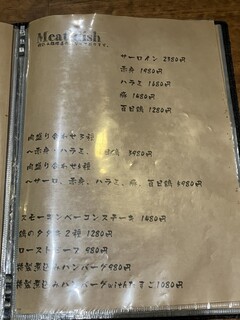 Meat dish
サーロイン 2380円
赤身 1480円
ハラミ 1680円
鴨 1480円
百日鶏 1280円
肉盛り合わせ3種
〜赤身、ハラミ、 3480円
肉盛り合わせ5種
〜サーロ、赤身、ハラミ、鴨、百日鶏 5980円
スモーキンベーコンステーキ 1480円
鶏のタタキ2種 1280円
ローストビーフ 980円
特製煮込みハンバーグ980円
特製煮込みハンバーグwithチーズ 1080円